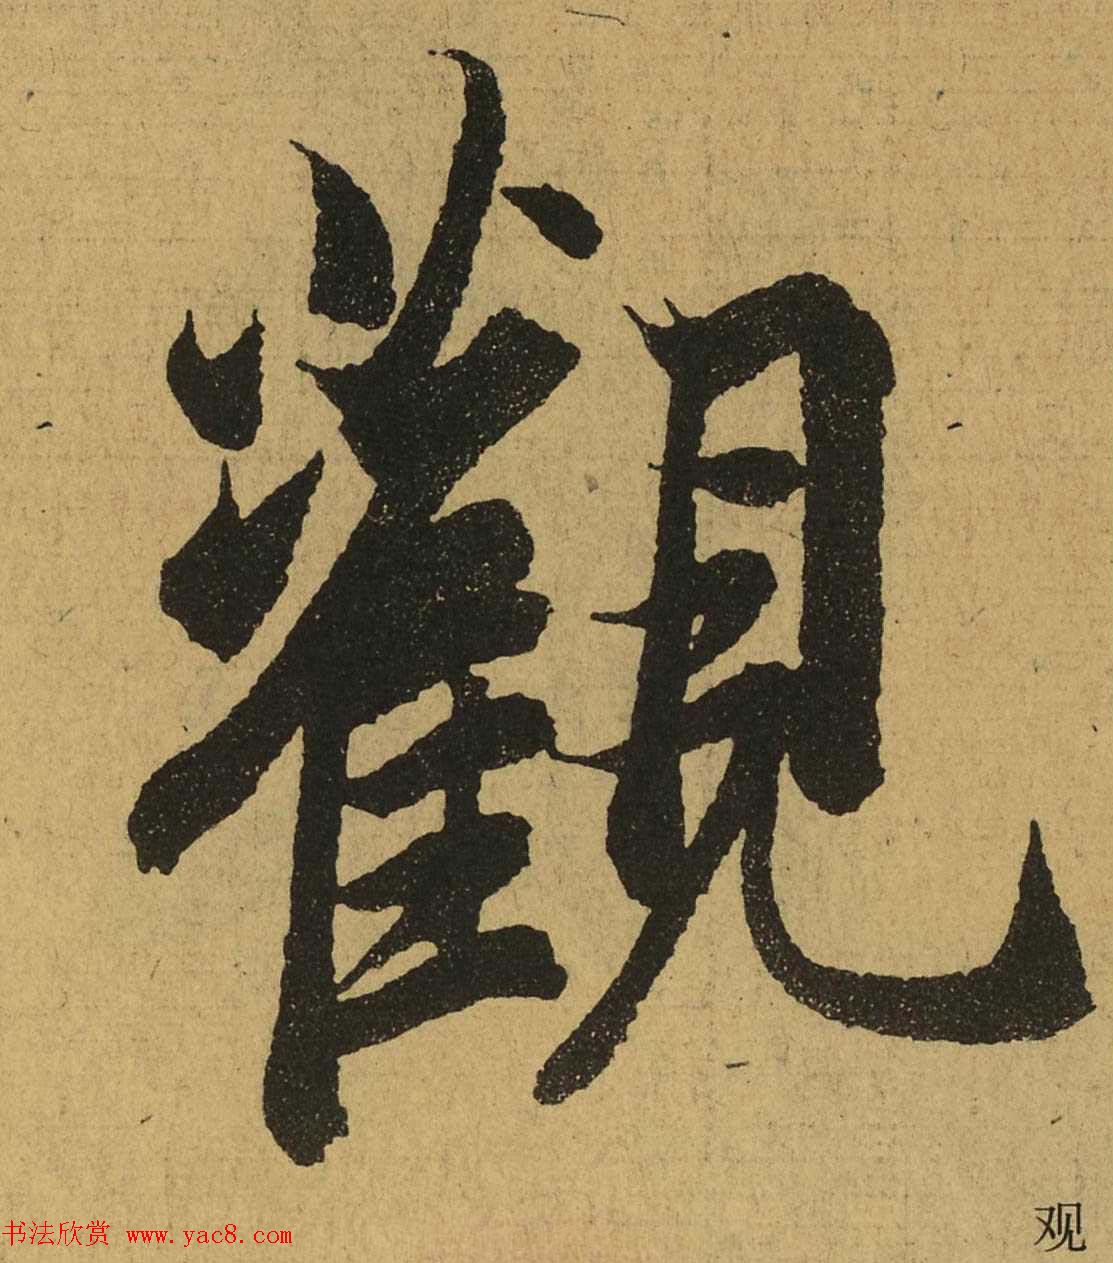 觀
观
书法欣赏 www.yac8.com